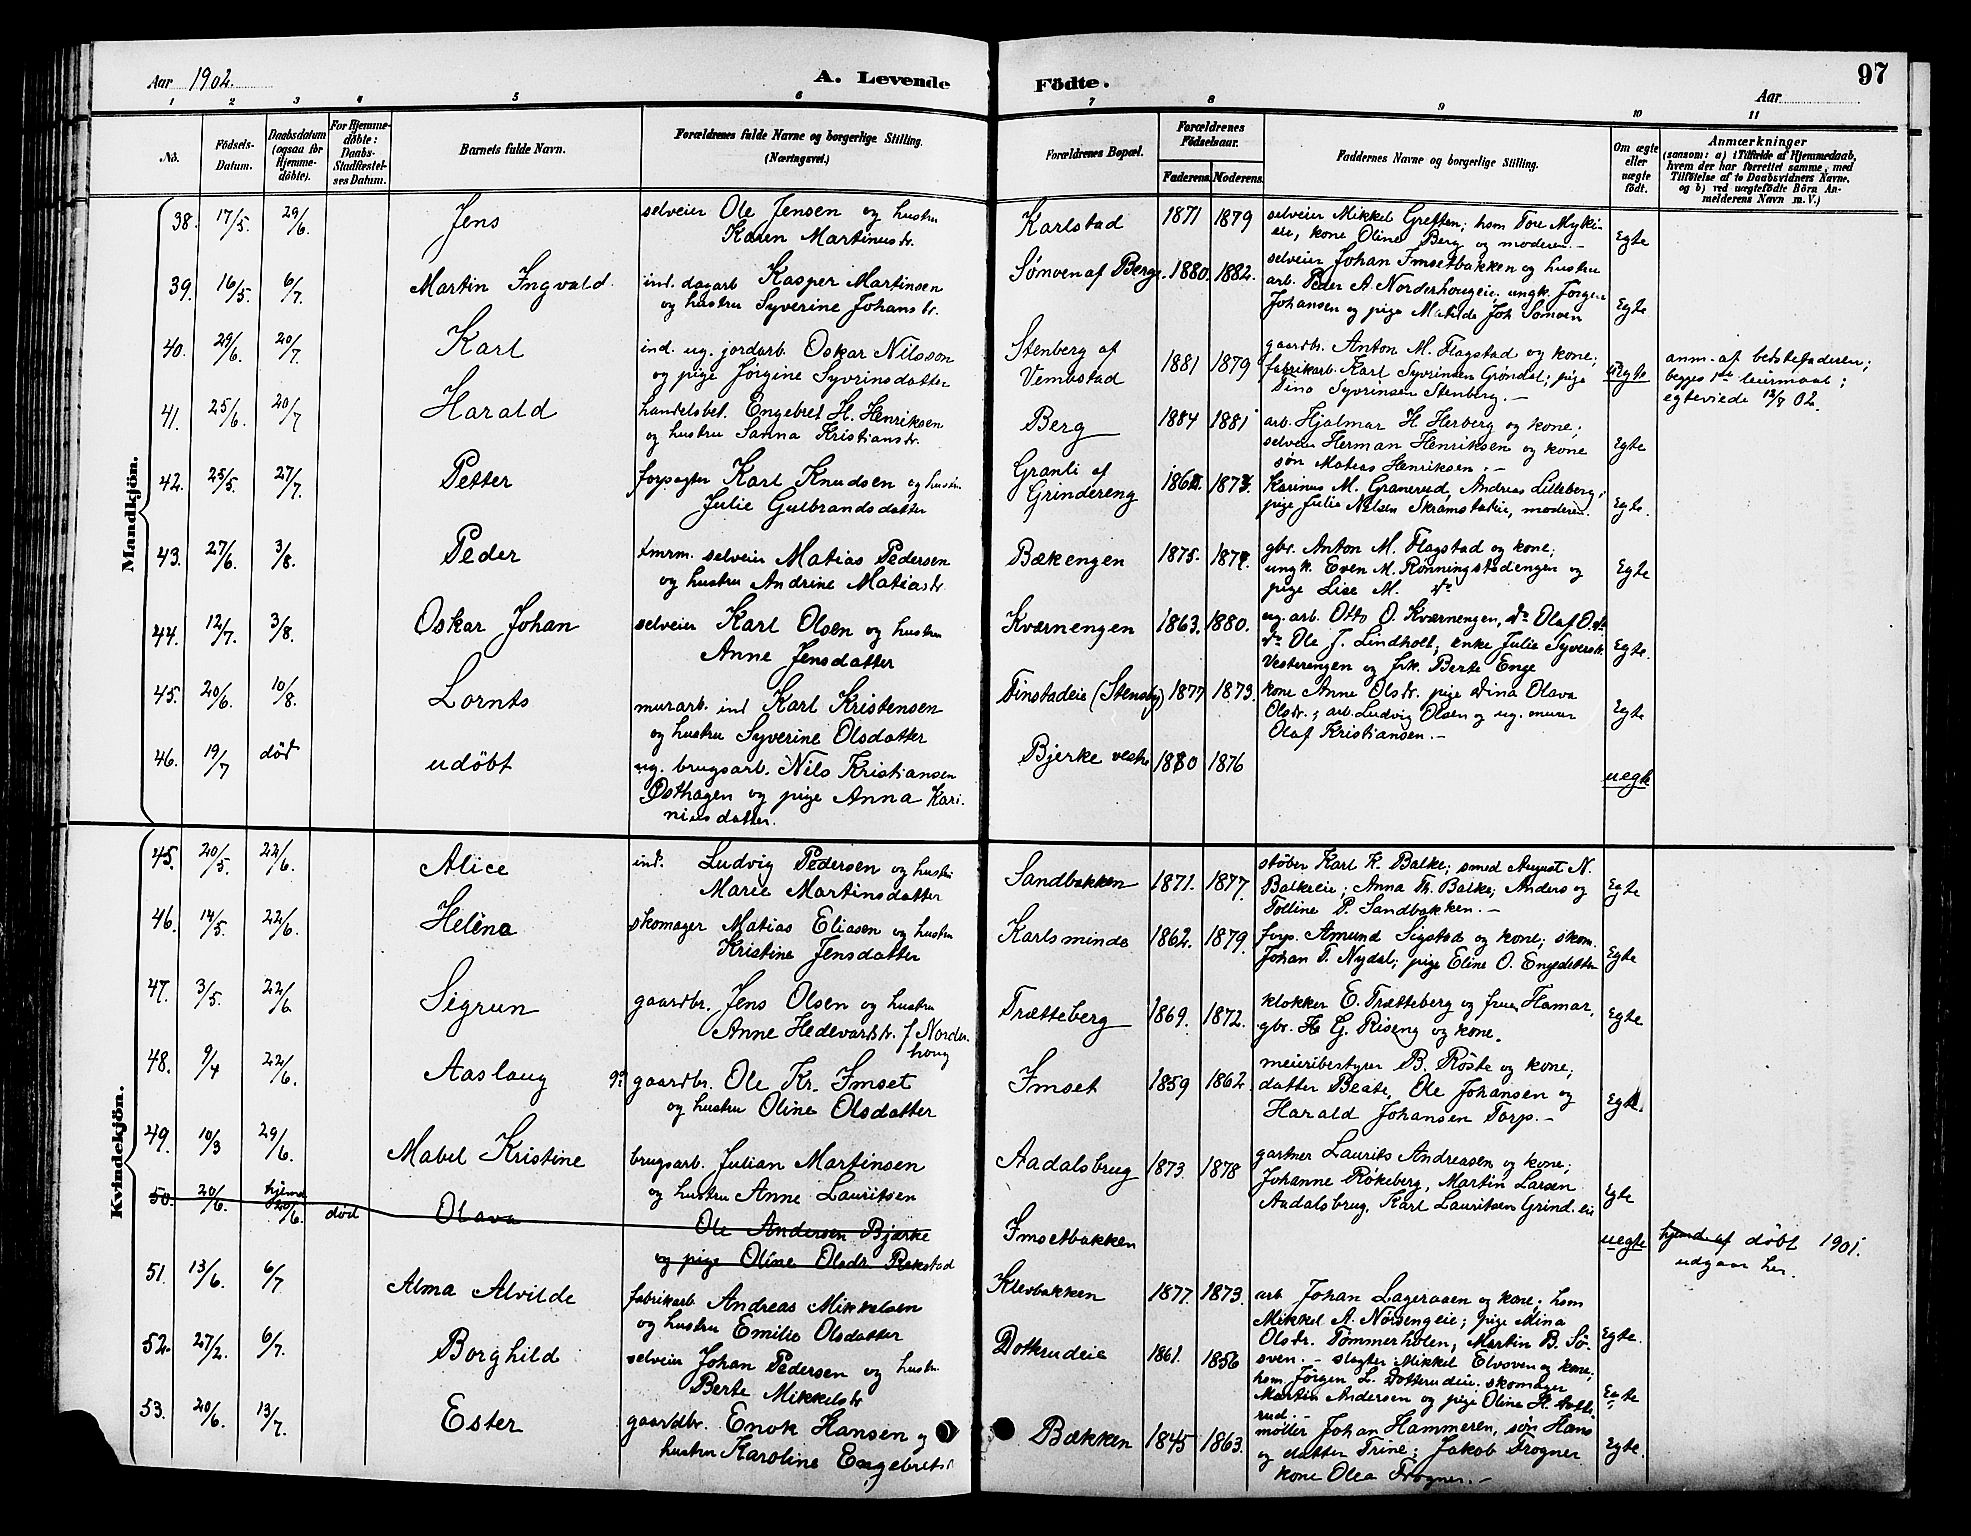 Aar 1902. A. Levende Fødte. Aar 97
1 2 3 4 5 6 7 8 9 10 11
No. Fødsels-Datum. Daabsdatum (ogsaa for Hjemme-døbte). For Hjemme-døbte: Daabs-Stadfæstel-ses Datum. Barnets fulde Navn. Forældrenes fulde Navne og borgerlige Stilling. (Næringsvei.) Forældrenes Bopæl. Forældrenes Fødselsaar. Faderens. Moderens. Faddernes Navne og borgerlige Stilling. Om ægte eller uægte født. Anmærkninger (saasom: a) i Tilfælde af Hjemmedaab, hvem der har forrettet samme, med Tilføielse af to Daabsvidners Navne, og b) ved uægtefødte Børn An-melderens Navn m. V.)
Mandkjön.
38. 17/5. 29/6. Jens selveier Ole Jensen og hustru Karlstad 1871 1879 selveier Mikkel Gretten; hsm Tore Myki-
Karen Martinusdr. eie, kone Oline Berg og moderen.- Egte
39. 16/5. 6/7. Martin Ingvald ind. dagarb Kasper Martinsen Sømoen af Berg. 1880. 1882. selveier Johan Imsetbakken og hustru
og hustru Syverine Johansdr. arb. Peder A. Norderhougeie. ungk. Jørgen
Johansen og pige Matilde Joh Sømoen Egte
40. 29/6. 20/7. Karl ind. ug. jordarb. Oskar Nilsson Stenberg af 1881 1879 gaardbr. Anton M. Flagstad og kone; anm. af bedstefaderen;
og pige Jørgine Syvrinsdatter Vembstad fabrikarb. Karl Syvrinsen Grøndal; pige uegte begges 1ste leiermaal;
Tina Syvrinsen Stenberg.- egteviede 12/8 02.
41. 25/6. 20/7 Harald handelsbet. Engebret H. Henriksen Berg 1884 1881 arb. Hjalmar H. Herberg og kone;
og hustru Sanna Kristiansdr. selveier Herman Henriksen og kone Egte
søn Matias Henriksen.-
42. 25/5. 27/7. Petter forpagter Karl Knudsen og hustru Granli af Karinus M. Granerud, Andreas Lilleberg;
Julie Gulbrandsdatter Grindereng pige Julie Nilsen Skramstadeie, moderen. Egte.
43. 27/6. 3/8. Peder tmrm. selveier Matias Pedersen Bækengen 1875. gbr. Anton M. Flagstad og kone;
og hustru Andrine Matiasdr. ungk. Even M. Rønningstadengen og Egte
pige Lise M. do
44. 12/7. 3/8. Oskar Johan selveier Karl Olsen og hustru Kværnengen 1863. 1880. ug. arb. Otto O. Kværnengen, do Olaf O. do
Anne Jensdatter do Ole J. Lindholt; enke Julie Syversdr. Egte.
Vesterengen og frk. Berte Enge
45. 20/6. 10/8. Lornts murarb. ind Karl Kristensen Finstadeie (Stensby) 1877 1873. kone Anne Olsdr. pige Dina Olava
og hustru Syverine Olsdatter Olsdr.; arb. Ludvig Olsen og ug. murer Egte
Olaf Kristiansen.-
46. 19/7 død udöbt ug. brugsarb. Nils Kristiansen Bjerke vestre 1880 1876 uegte
Østhagen og pige Anna Kari-
niusdatter.
Kvindekjön.
45. 20/5. 22/6. Alice ind. Ludvig Pedersen og hustru Sandbakken 1871. 1877. støber Karl K. Balke; smed August N.
Marie Martinsdatter Balkeeie; Anna Th. Balke; Anders og Egte
Tolline P. Sandbakken.-
46. 14/5. 22/6. Helena skomager Matias Eliasen og hustru Karlsminde 1862. 1879. forp. Amund Sigstad og kone; skom.
Kristine Jensdatter Johan T. Nydal; pige Eline O. Engedetten Egte
47. 3/5. 22/6. Sigrun gaardbr. Jens Olsen og hustru Trætteberg 1869. 1872. klokker E. Trætteberg og frue, Hamar,
Anne Hedevarsdr. f Norder- gbr. H G. Riseng og kone. Egte
houg
48. 9/4 22/6. Aaslaug gaardbr. Ole Kr. Imset Imset 1859 1862 meieribestyrer B. Röste og kone;
og hustru Oline Olsdatter datter Beate, Ole Johansen og Egte.
Harald Johansen Torp.-
49. 10/3 29/6. Mabel Kristine brugsarb. Julian Martinsen Aadalsbrug 1873 1878 gartner Laurits Andreasen og kone;
og hustru Anne Lauritsen Johanne Røkeberg, Martin Larsen
Aadalsbrug, Karl Lauritsen Grind.eie Egte
50. 20/6. hjemme 20/6. død Olava Ole Andersen Bjærke Imsetbakken uegte hjemd af døbt 1901.
og pige Oline Olsdr. Rækstad udgaar her.
51. 13/6. 6/7 Alma Alvilde fabrikarb Andreas Mikkelsen Klevbakken 1877. 1873. arb Johan Lageraaen og kone; hsm
og hustru Emilie Olsdatter Mikkel A. Nørsengeie; pige Mina
Olsdr. Tømmerholen, Martin B. Sö- Egte.
52. 27/2. 6/7. Borghild selveier Johan Pedersen og hustru Dotkrudeie 1861. 1856 sven.- slagter Mikkel Elvoven og kone;
Berte Mikkelsdr hsm. Jørgen L. Dotterudeie; skomager
Martin Andersen og pige Oline H. Egte
rud.-
53. 20/6. 13/7. Ester gaardbr. Enok Hansen og Bækken 1845 1863. møller Johan Hammeren, søn Hans
hustru Karoline Engebretsd og datter Trine; Jakob Frogner Egte.
kone Olea Frogner.-